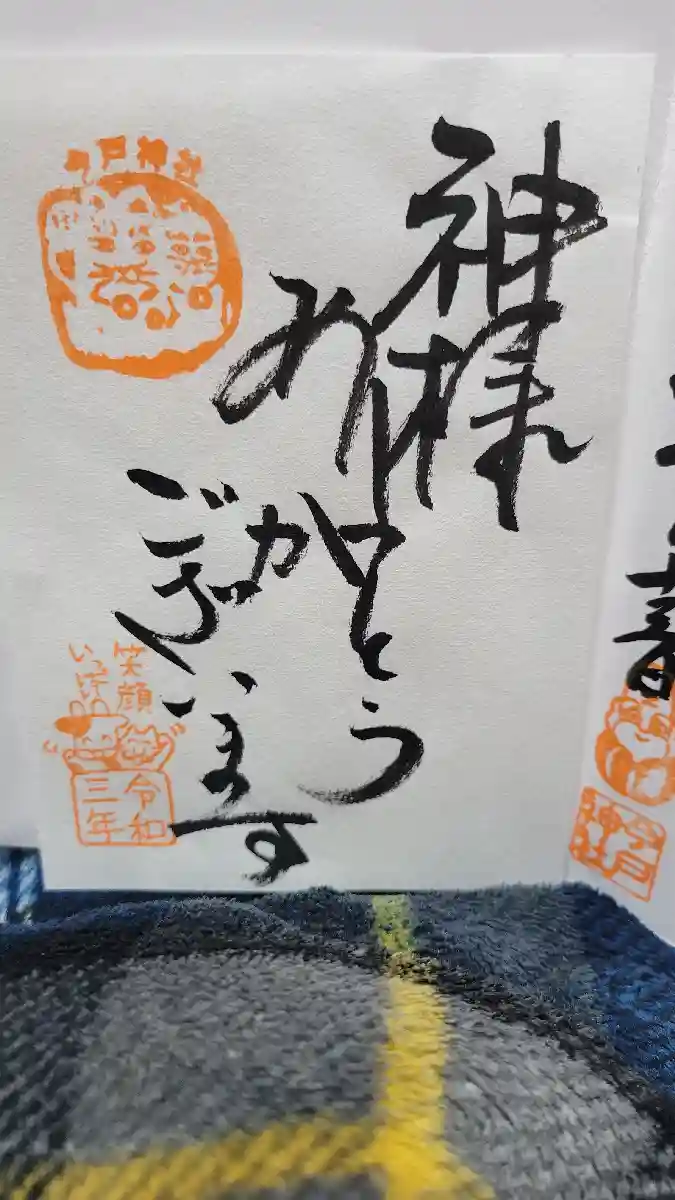 神様
ありがとう
ございます
今戸神社
笑顔
いっぱい
令和
三年
春
今戸
神社